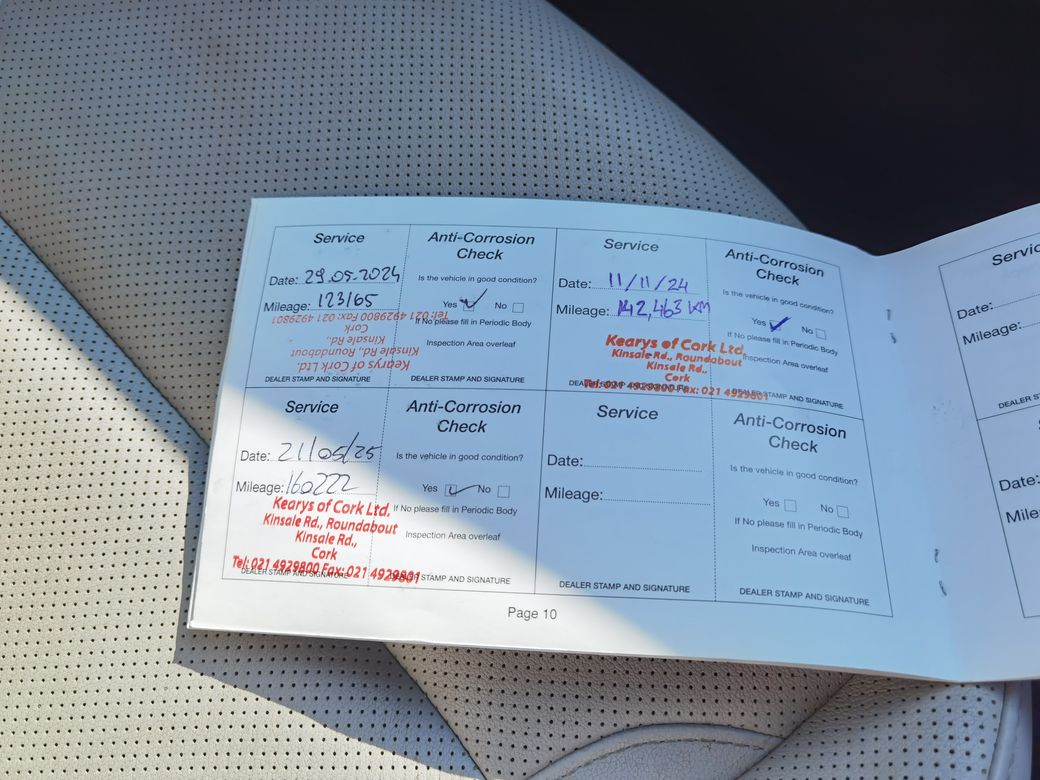 Service
Date: 29.05.2024
Mileage: 123165
Tel: 021 4929800 Fax: 021 4929801
Cork
Kinsale Rd.,
Kinsale Rd., Roundabout
Kearys of Cork Ltd.
DEALER STAMP AND SIGNATURE
Anti-Corrosion
Check
Is the vehicle in good condition?
Yes No
If No please fill in Periodic Body
Inspection Area overleaf
DEALER STAMP AND SIGNATURE
Service
Date: 11/11/24
Mileage: 142,463 km
Kearys of Cork Ltd.
Kinsale Rd., Roundabout
Kinsale Rd.,
Cork
Tel: 021 4929800 Fax: 021 4929801
DEALER STAMP AND SIGNATURE
Anti-Corrosion
Check
Is the vehicle in good condition?
Yes No
If No please fill in Periodic Body
Inspection Area overleaf
DEALER STAMP AND SIGNATURE
Service
Date: 21/05/25
Mileage: 160222
Kearys of Cork Ltd.
Kinsale Rd., Roundabout
Kinsale Rd.,
Cork
Tel: 021 4929800 Fax: 021 4929801
DEALER STAMP AND SIGNATURE
Anti-Corrosion
Check
Is the vehicle in good condition?
Yes No
If No please fill in Periodic Body
Inspection Area overleaf
DEALER STAMP AND SIGNATURE
Service
Date:
Mileage:
DEALER STAMP AND SIGNATURE
Anti-Corrosion
Check
Is the vehicle in good condition?
Yes No
If No please fill in Periodic Body
Inspection Area overleaf
DEALER STAMP AND SIGNATURE
Page 10
Date:
Mileage:
DEALER
Date: